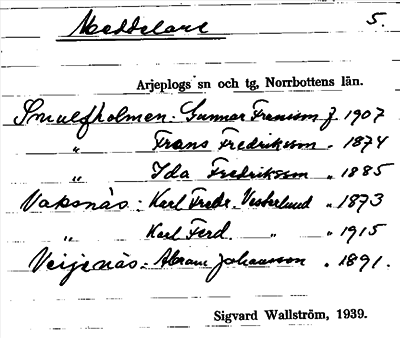 Meddelare 5.
Arjeplogs sn och tg, Norrbottens län.
Smulfholmen: Gunnar Fransson f. 1907
" Frans Fredriksson " 1874
" Ida Fredriksson " 1885
Vaksnäs: Karl Fredr. Vesterlund " 1873
" Karl Ferd. " " 1915
Veijenäs: Abram Johansson " 1891.
Sigvard Wallström, 1939.